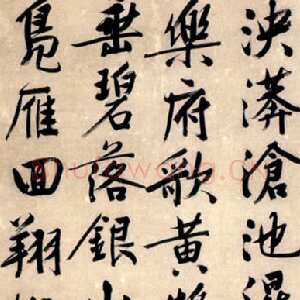 泱漭滄池混
樂府歌黃
垂碧落銀
鳧雁回翔